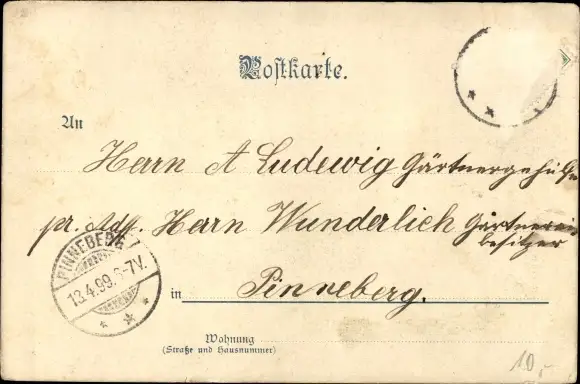 Postkarte.
An
Herrn A Ludewig Gärtnergehülfe
pr. Adr. Herrn Wunderlich Gärtnerei
besitzer
PINNEBERG
13.4.99. 6-7V.
in Pinneberg.
Wohnung
(Straße und Hausnummer)
10,-